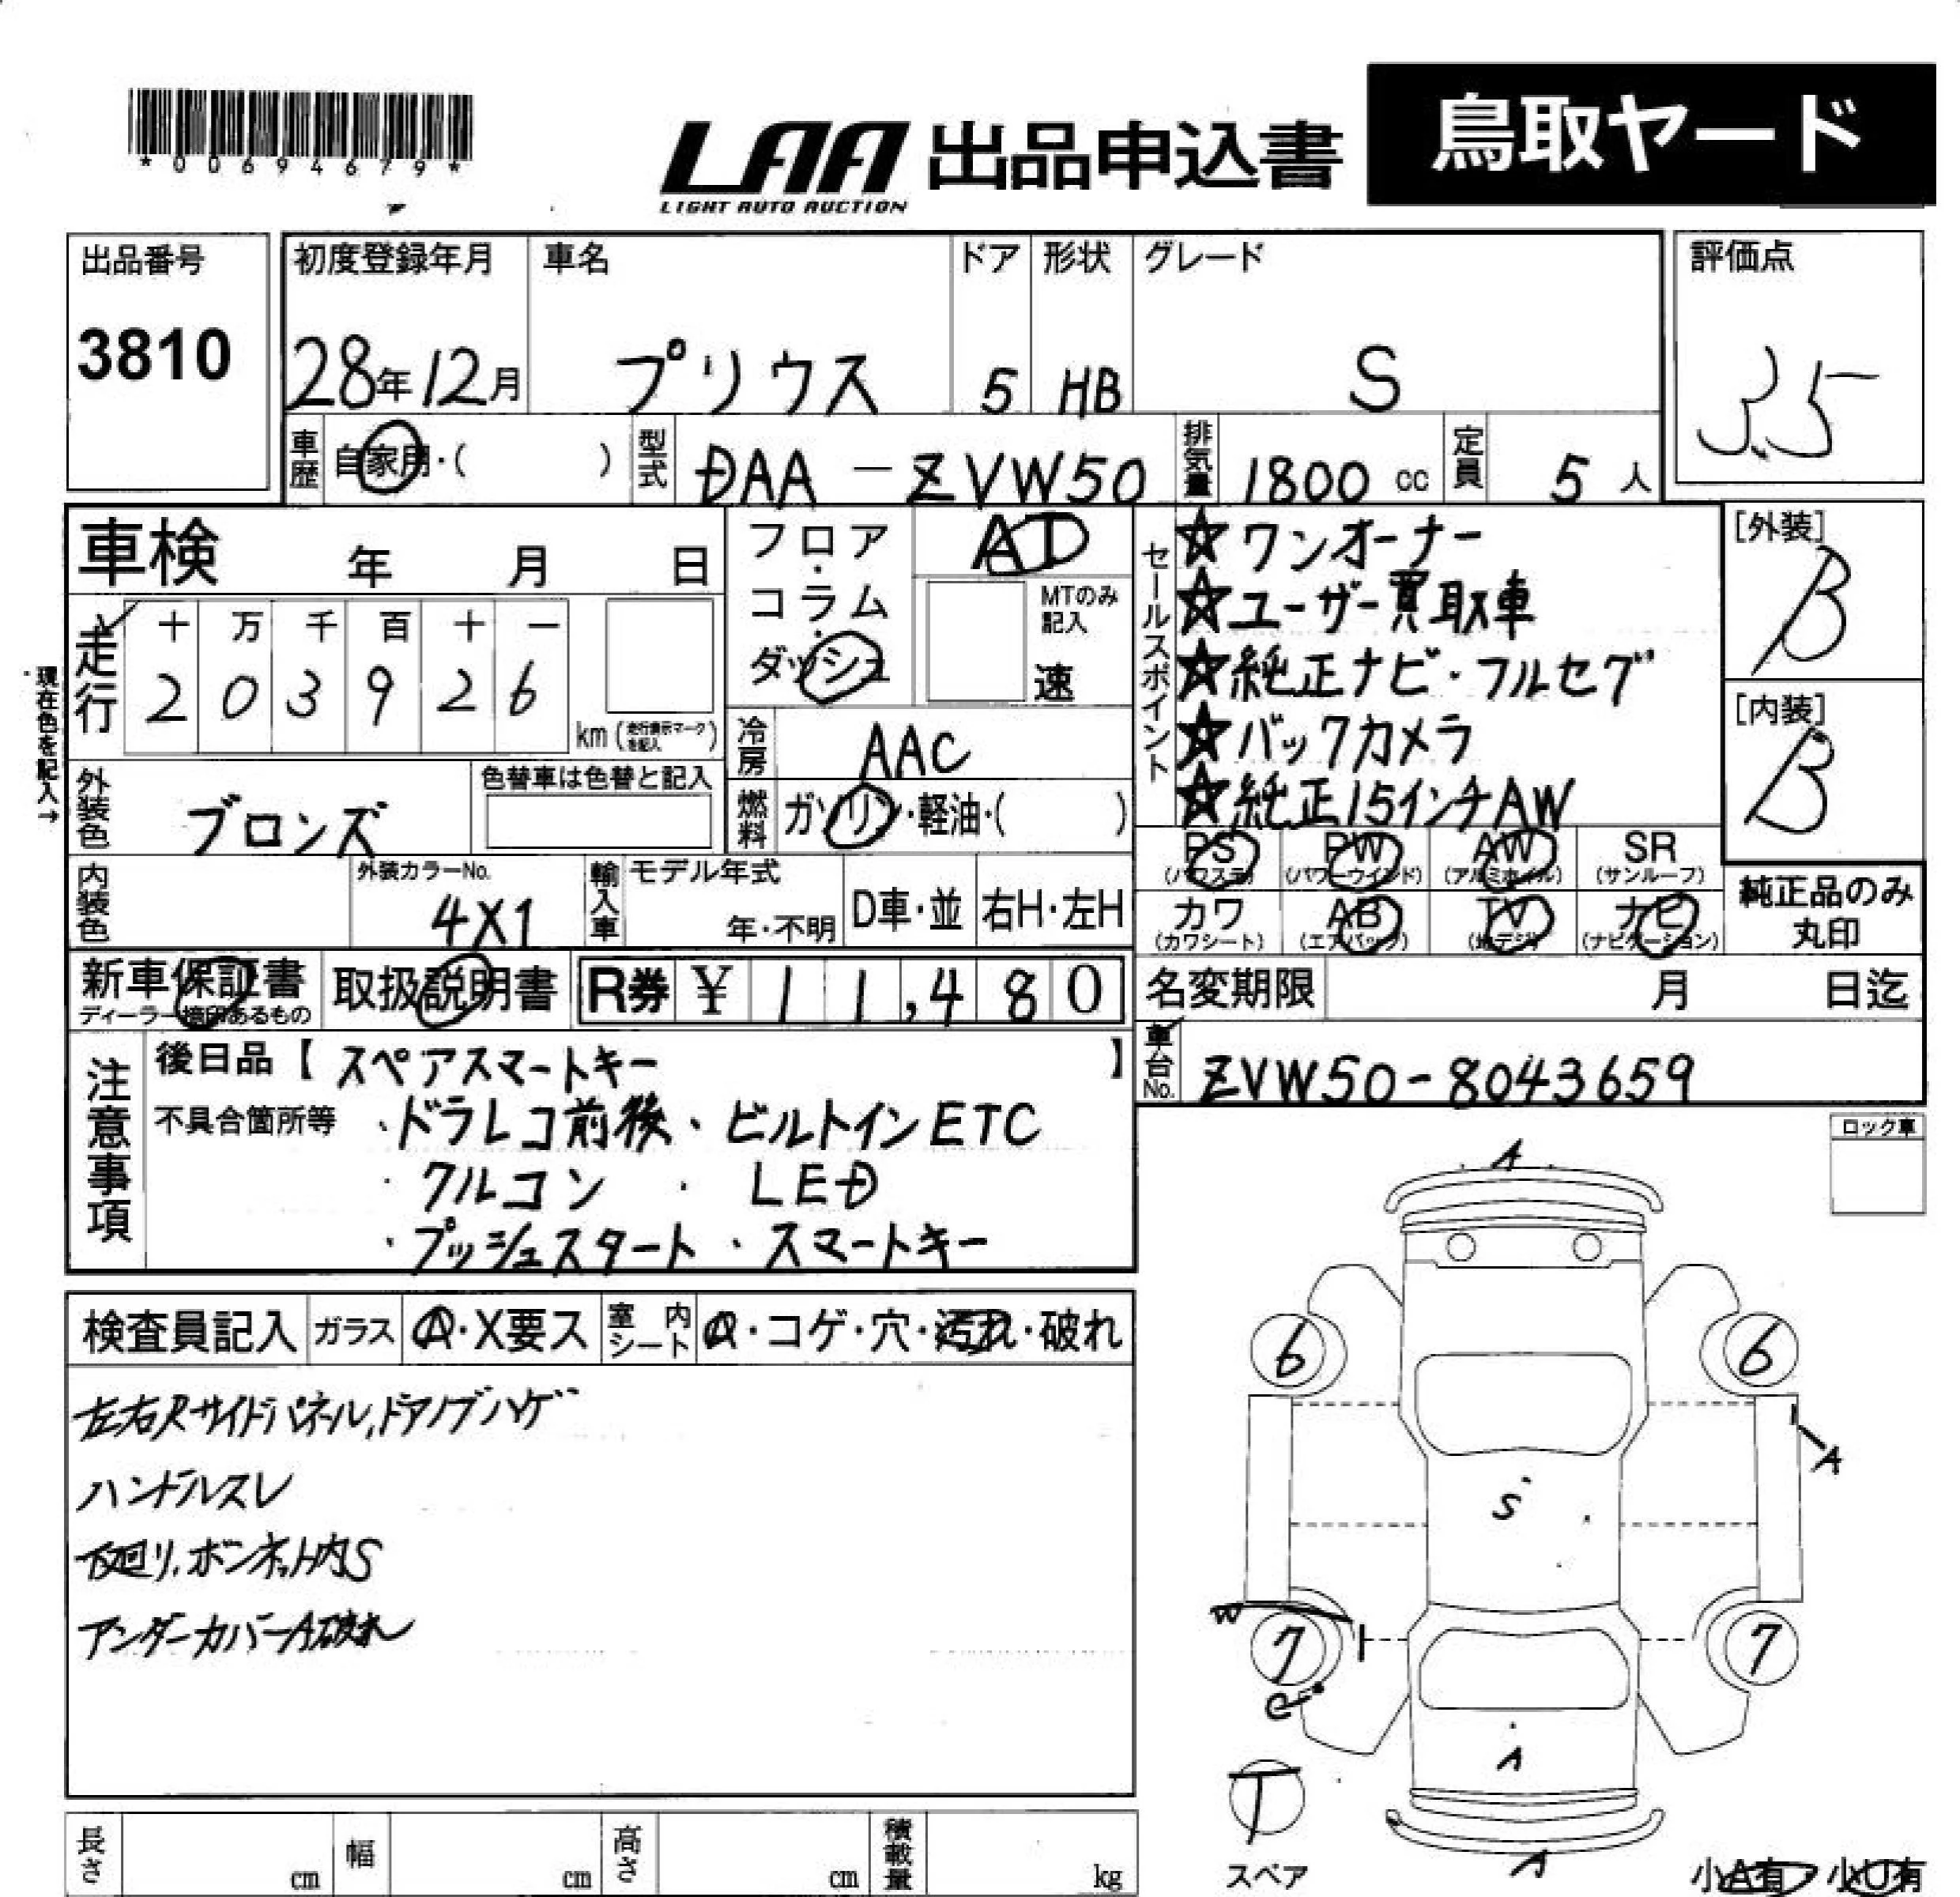 *00694679*
LAA 出品申込書
LIGHT AUTO AUCTION
鳥取ヤード
出品番号
3810
初度登録年月
28年12月
車名
プリウス
ドア
5
形状
HB
グレード
S
評価点
3.5
車歴 自家用・( )
型式 DAA-ZVW50
排気量 1800 cc
定員 5 人
車検 年 月 日
走行
十 万 千 百 十 一
2 0 3 9 2 6
km (走行表示マークを記入)
現在色を記入→
フロア・コラム・ダッシュ
AT
MTのみ記入
速
冷房 AAC
燃料 ガソリン・軽油・( )
外装色 ブロンズ
色替車は色替と記入
内装色
外装カラーNo.
4X1
輸入車
モデル年式
年・不明
D車・並
右H・左H
セールスポイント
☆ワンオーナー
☆ユーザー買取車
☆純正ナビ・フルセグ
☆バックカメラ
☆純正15インチAW
[外装]
B
[内装]
B
PS (パワステ)
PW (パワーウインド)
AW (アルミホイル)
SR (サンルーフ)
カワ (カワシート)
AB (エアバック)
TV (地デジ)
ナビ (ナビゲーション)
純正品のみ丸印
新車保証書
ディーラー捺印あるもの
取扱説明書
R券 ¥ 11,480
名変期限 月 日迄
車台No. ZVW50-8043659
注意事項
後日品【スペアスマートキー】
不具合箇所等 ・ドラレコ前後・ビルトインETC
・クルコン ・LED
・プッシュスタート・スマートキー
ロック車
検査員記入
ガラス A・X要ス
室内シート A・コゲ・穴・汚れ・破れ
左右Rサイドパネル,ドアノブハゲ
ハンドルスレ
下廻り,ボンネット内S
アンダーカバーA破れ
A
6
6
A
S
W
7
7
A
T
スペア
A
小A有・小U有
長さ cm
幅 cm
高さ cm
積載量 kg